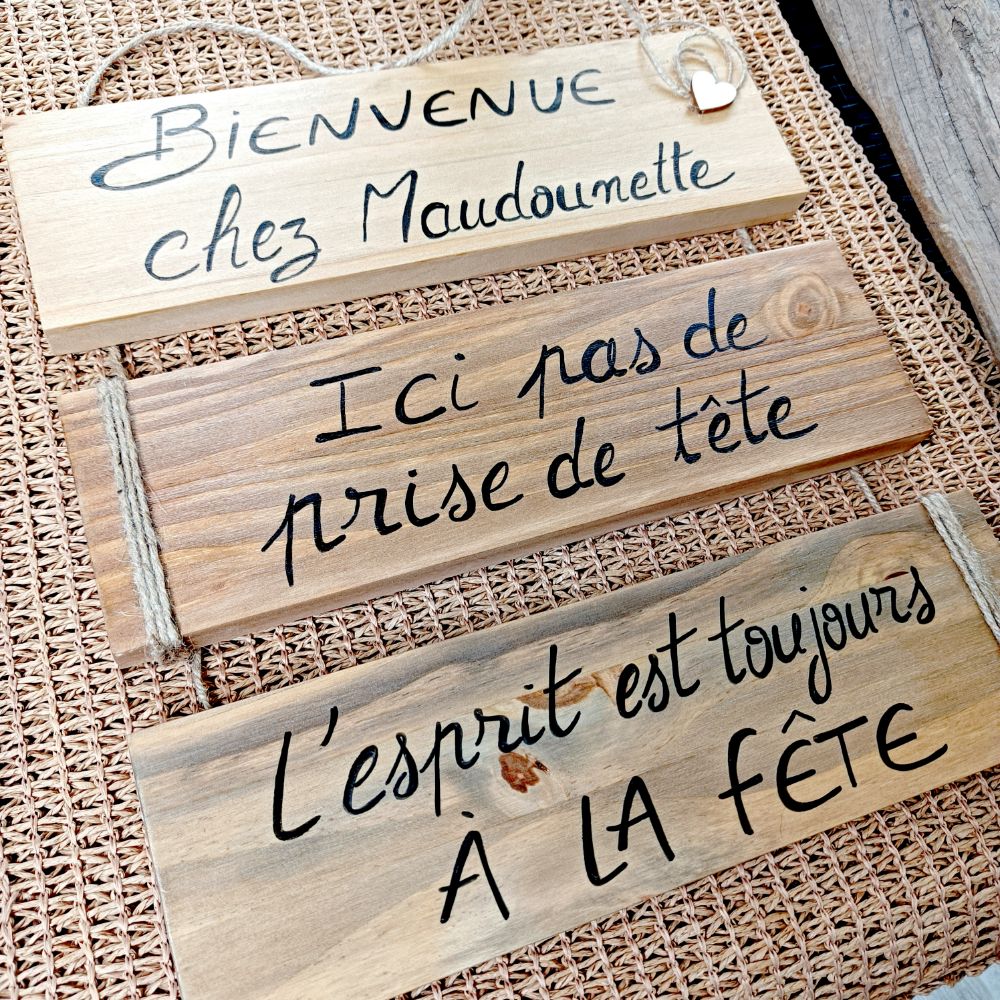 BIENVENUE
chez Maudounette
Ici pas de
prise de tête
L'esprit est toujours
À LA FÊTE